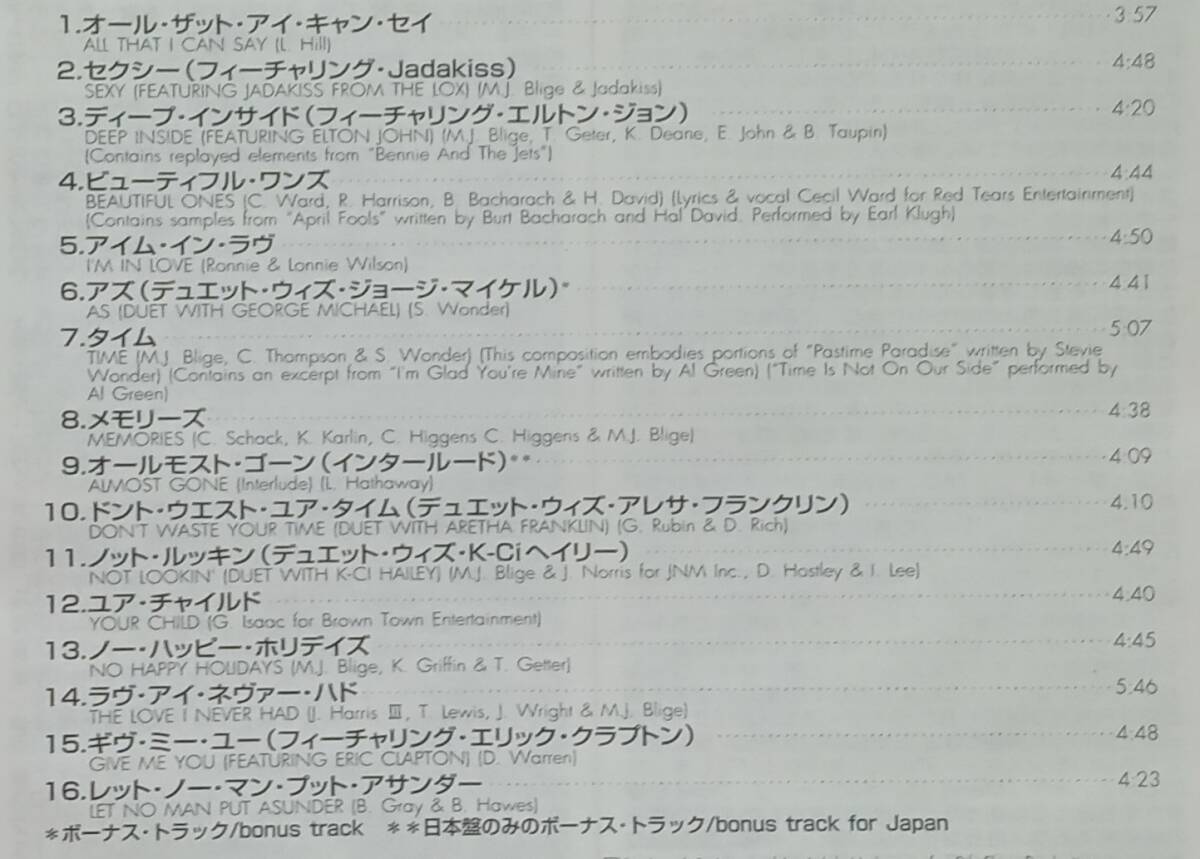 1.オール・ザット・アイ・キャン・セイ 3:57
ALL THAT I CAN SAY (L. Hill)
2.セクシー(フィーチャリング・Jadakiss) 4:48
SEXY (FEATURING JADAKISS FROM THE LOX) (M.J. Blige & Jadakiss)
3.ディープ・インサイド(フィーチャリング・エルトン・ジョン) 4:20
DEEP INSIDE (FEATURING ELTON JOHN) (M.J. Blige, T. Geter, K. Deane, E. John & B. Taupin)
(Contains replayed elements from "Bennie And The Jets")
4.ビューティフル・ワンズ 4:44
BEAUTIFUL ONES (C. Ward, R. Harrison, B. Bacharach & H. David) (Lyrics & vocal Cecil Ward for Red Tears Entertainment)
(Contains samples from "April Fools" written by Burt Bacharach and Hal David. Performed by Earl Klugh)
5.アイム・イン・ラヴ 4:50
I'M IN LOVE (Ronnie & Lonnie Wilson)
6.アズ(デュエット・ウィズ・ジョージ・マイケル)* 4:41
AS (DUET WITH GEORGE MICHAEL) (S. Wonder)
7.タイム 5:07
TIME (M.J. Blige, C. Thompson & S. Wonder) (This composition embodies portions of "Pastime Paradise" written by Stevie
Wonder) (Contains an excerpt from "I'm Glad You're Mine" written by Al Green) ("Time Is Not On Our Side" performed by
Al Green)
8.メモリーズ 4:38
MEMORIES (C. Schack, K. Karlin, C. Higgens C. Higgens & M.J. Blige)
9.オールモスト・ゴーン(インタールード)** 4:09
ALMOST GONE (Interlude) (L. Hathaway)
10.ドント・ウエスト・ユア・タイム(デュエット・ウィズ・アレサ・フランクリン) 4:10
DON'T WASTE YOUR TIME (DUET WITH ARETHA FRANKLIN) (G. Rubin & D. Rich)
11.ノット・ルッキン(デュエット・ウィズ・K-Ciヘイリー) 4:49
NOT LOOKIN' (DUET WITH K-CI HAILEY) (M.J. Blige & J. Norris for JNM Inc., D. Hastley & I. Lee)
12.ユア・チャイルド 4:40
YOUR CHILD (G. Isaac for Brown Town Entertainment)
13.ノー・ハッピー・ホリデイズ 4:45
NO HAPPY HOLIDAYS (M.J. Blige, K. Griffin & T. Getter)
14.ラヴ・アイ・ネヴァー・ハド 5:46
THE LOVE I NEVER HAD (J. Harris III, T. Lewis, J. Wright & M.J. Blige)
15.ギヴ・ミー・ユー(フィーチャリング・エリック・クラプトン) 4:48
GIVE ME YOU (FEATURING ERIC CLAPTON) (D. Warren)
16.レット・ノー・マン・プット・アサンダー 4:23
LET NO MAN PUT ASUNDER (B. Gray & B. Hawes)
*ボーナス・トラック/bonus track **日本盤のみのボーナス・トラック/bonus track for Japan